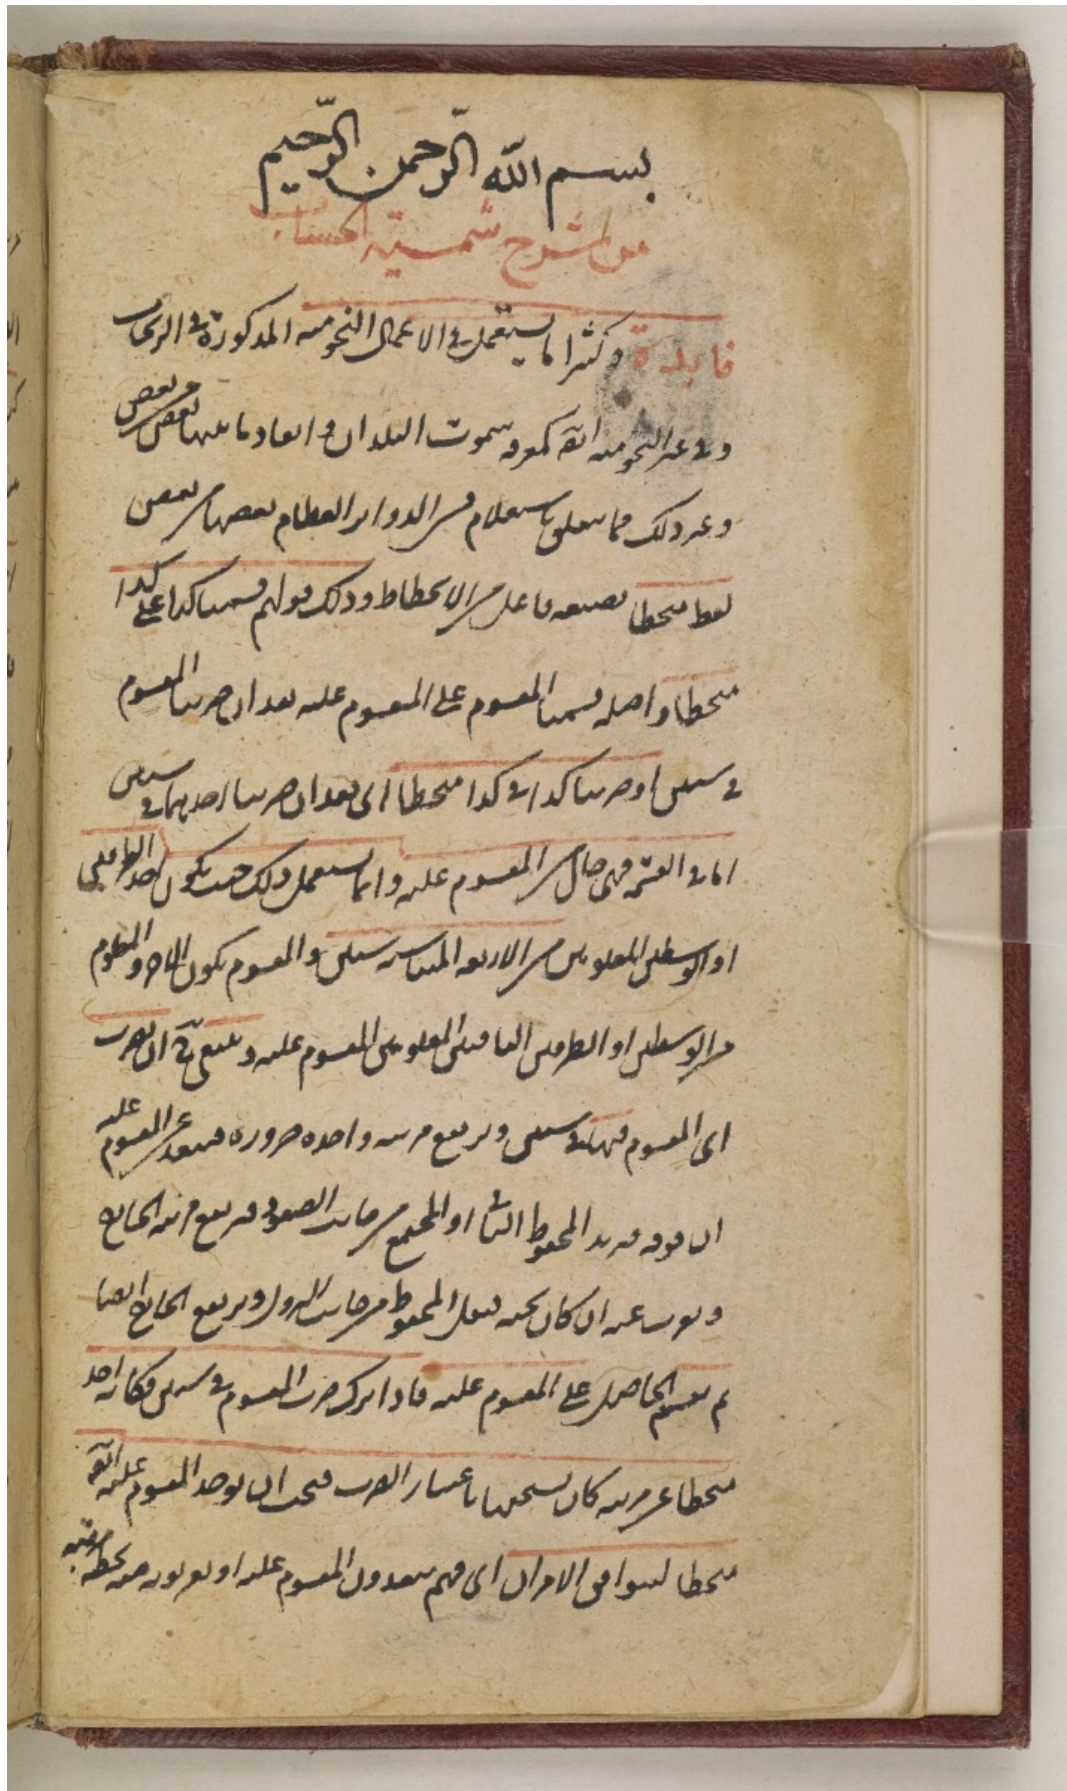 بسم الله الرّحمن الرّحيم
من شرح شمسية الحساب
فايدة وكثيرا ما يستعمل في الاعمال النجومية المذكورة في الزيجات
وفي غير النجومية ايضا كمعرفة سموت البلدان وابعاد ما بينها بعض وبعض
وغير ذلك مما يتعلق باستعلام قسي الدواير العظام بعضها من بعض
لفظ منحطا بصيغة فاعل من الانحطاط وذلك قولهم قسمنا كذا على كذا
منحطا واصله قسمنا المقسوم على المقسوم عليه بعد ان ضربنا المقسوم
في ستين او ضربنا كذا في كذا منحطا اي بعد ان ضربنا احدهما في ستين
اما في القسمة فهي حال من المقسوم عليه وانما يستعمل ذلك حيث يكون احد الطرفين
او الوسطين المعلومين من الاربعة المتناسبة ستين والمقسوم يكون الاخر والمعلوم
من الوسطين او الطرفين الباقيين المعلومين المقسوم عليه وينبغي ان يضرب
اي المقسوم فيها في ستين ويرتفع مرتبة واحدة ضرورة فيبعد عن المقسوم عليه
ان فوقه فيزيد المحفوظ الثاني او المجتمع من جانب الصعود فيرتفع مرتبة الخارج
ويقرب عنه ان كان تحته فيقل المحفوظ من جانب النزول ويرتفع الخارج ايضا
ثم يقسم الحاصل على المقسوم عليه فاذا ترك ضرب المقسوم في ستين فكانه اخذ
منحطا عن مرتبة كان يستحقها باعتبار الضرب فيجب ان يوخذ المقسوم عليه ايضا
منحطا ليتوافق الامران اي فهم يعدون المقسوم عليه او يعتبرونه منحطا مرتبة